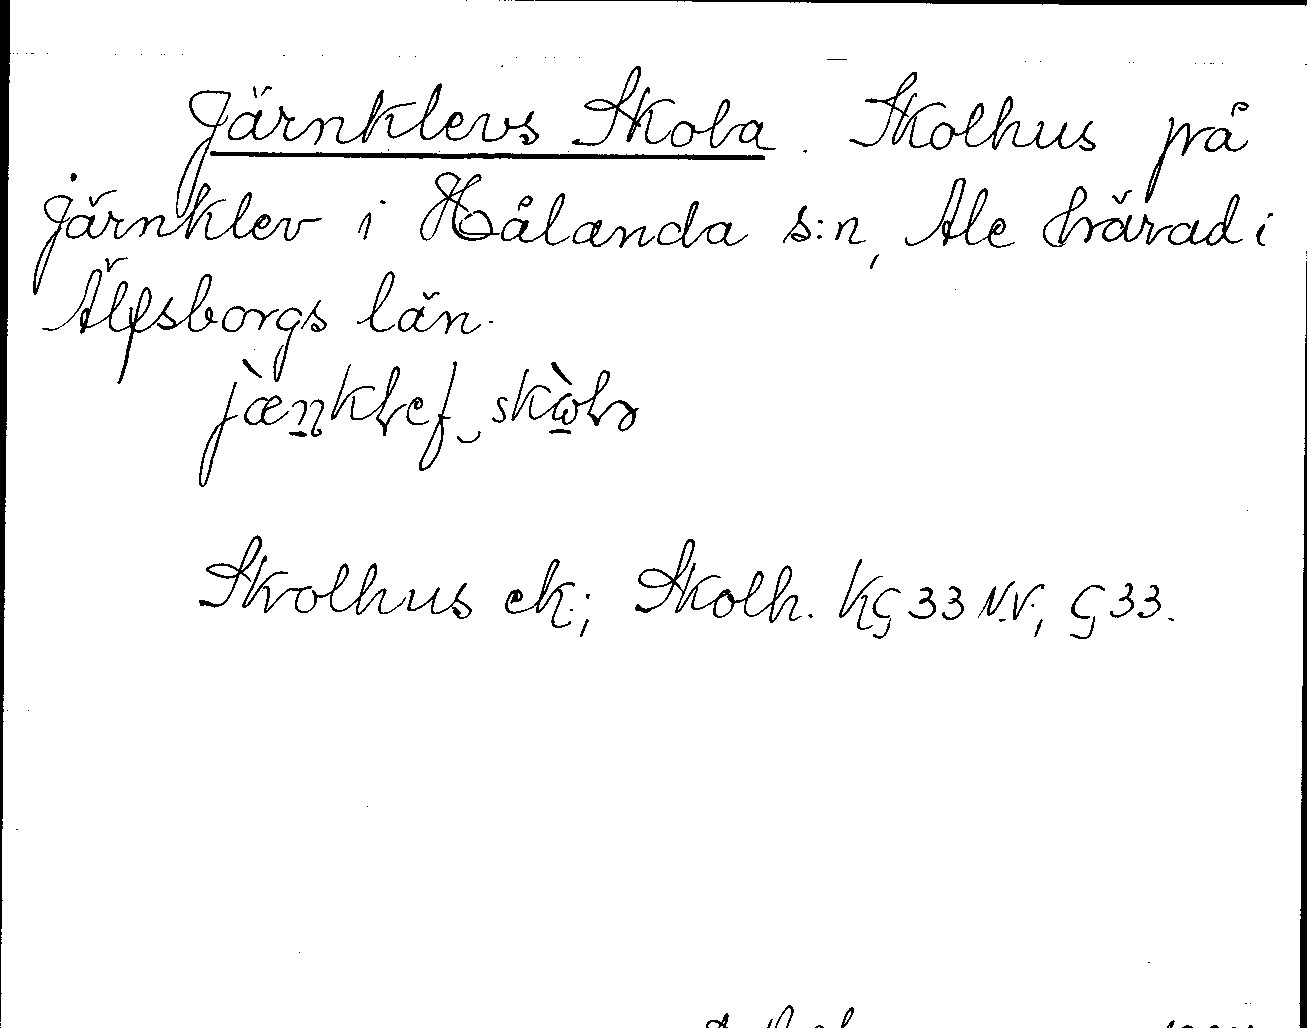 Järnklevs Skola. Skolhus på
järnklev i Hålanda s:n, Ale härad i
Älfsborgs län.
jæ̀n̲kləef‿skὼlə
Skolhus ek.; Skolh. KG 33 N.V., G 33.